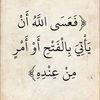 ﴿فَعَسَى اللَّهُ أَنْ
يَأْتِيَ بِالْفَتْحِ أَوْ أَمْرٍ
مِنْ عِنْدِهِ﴾